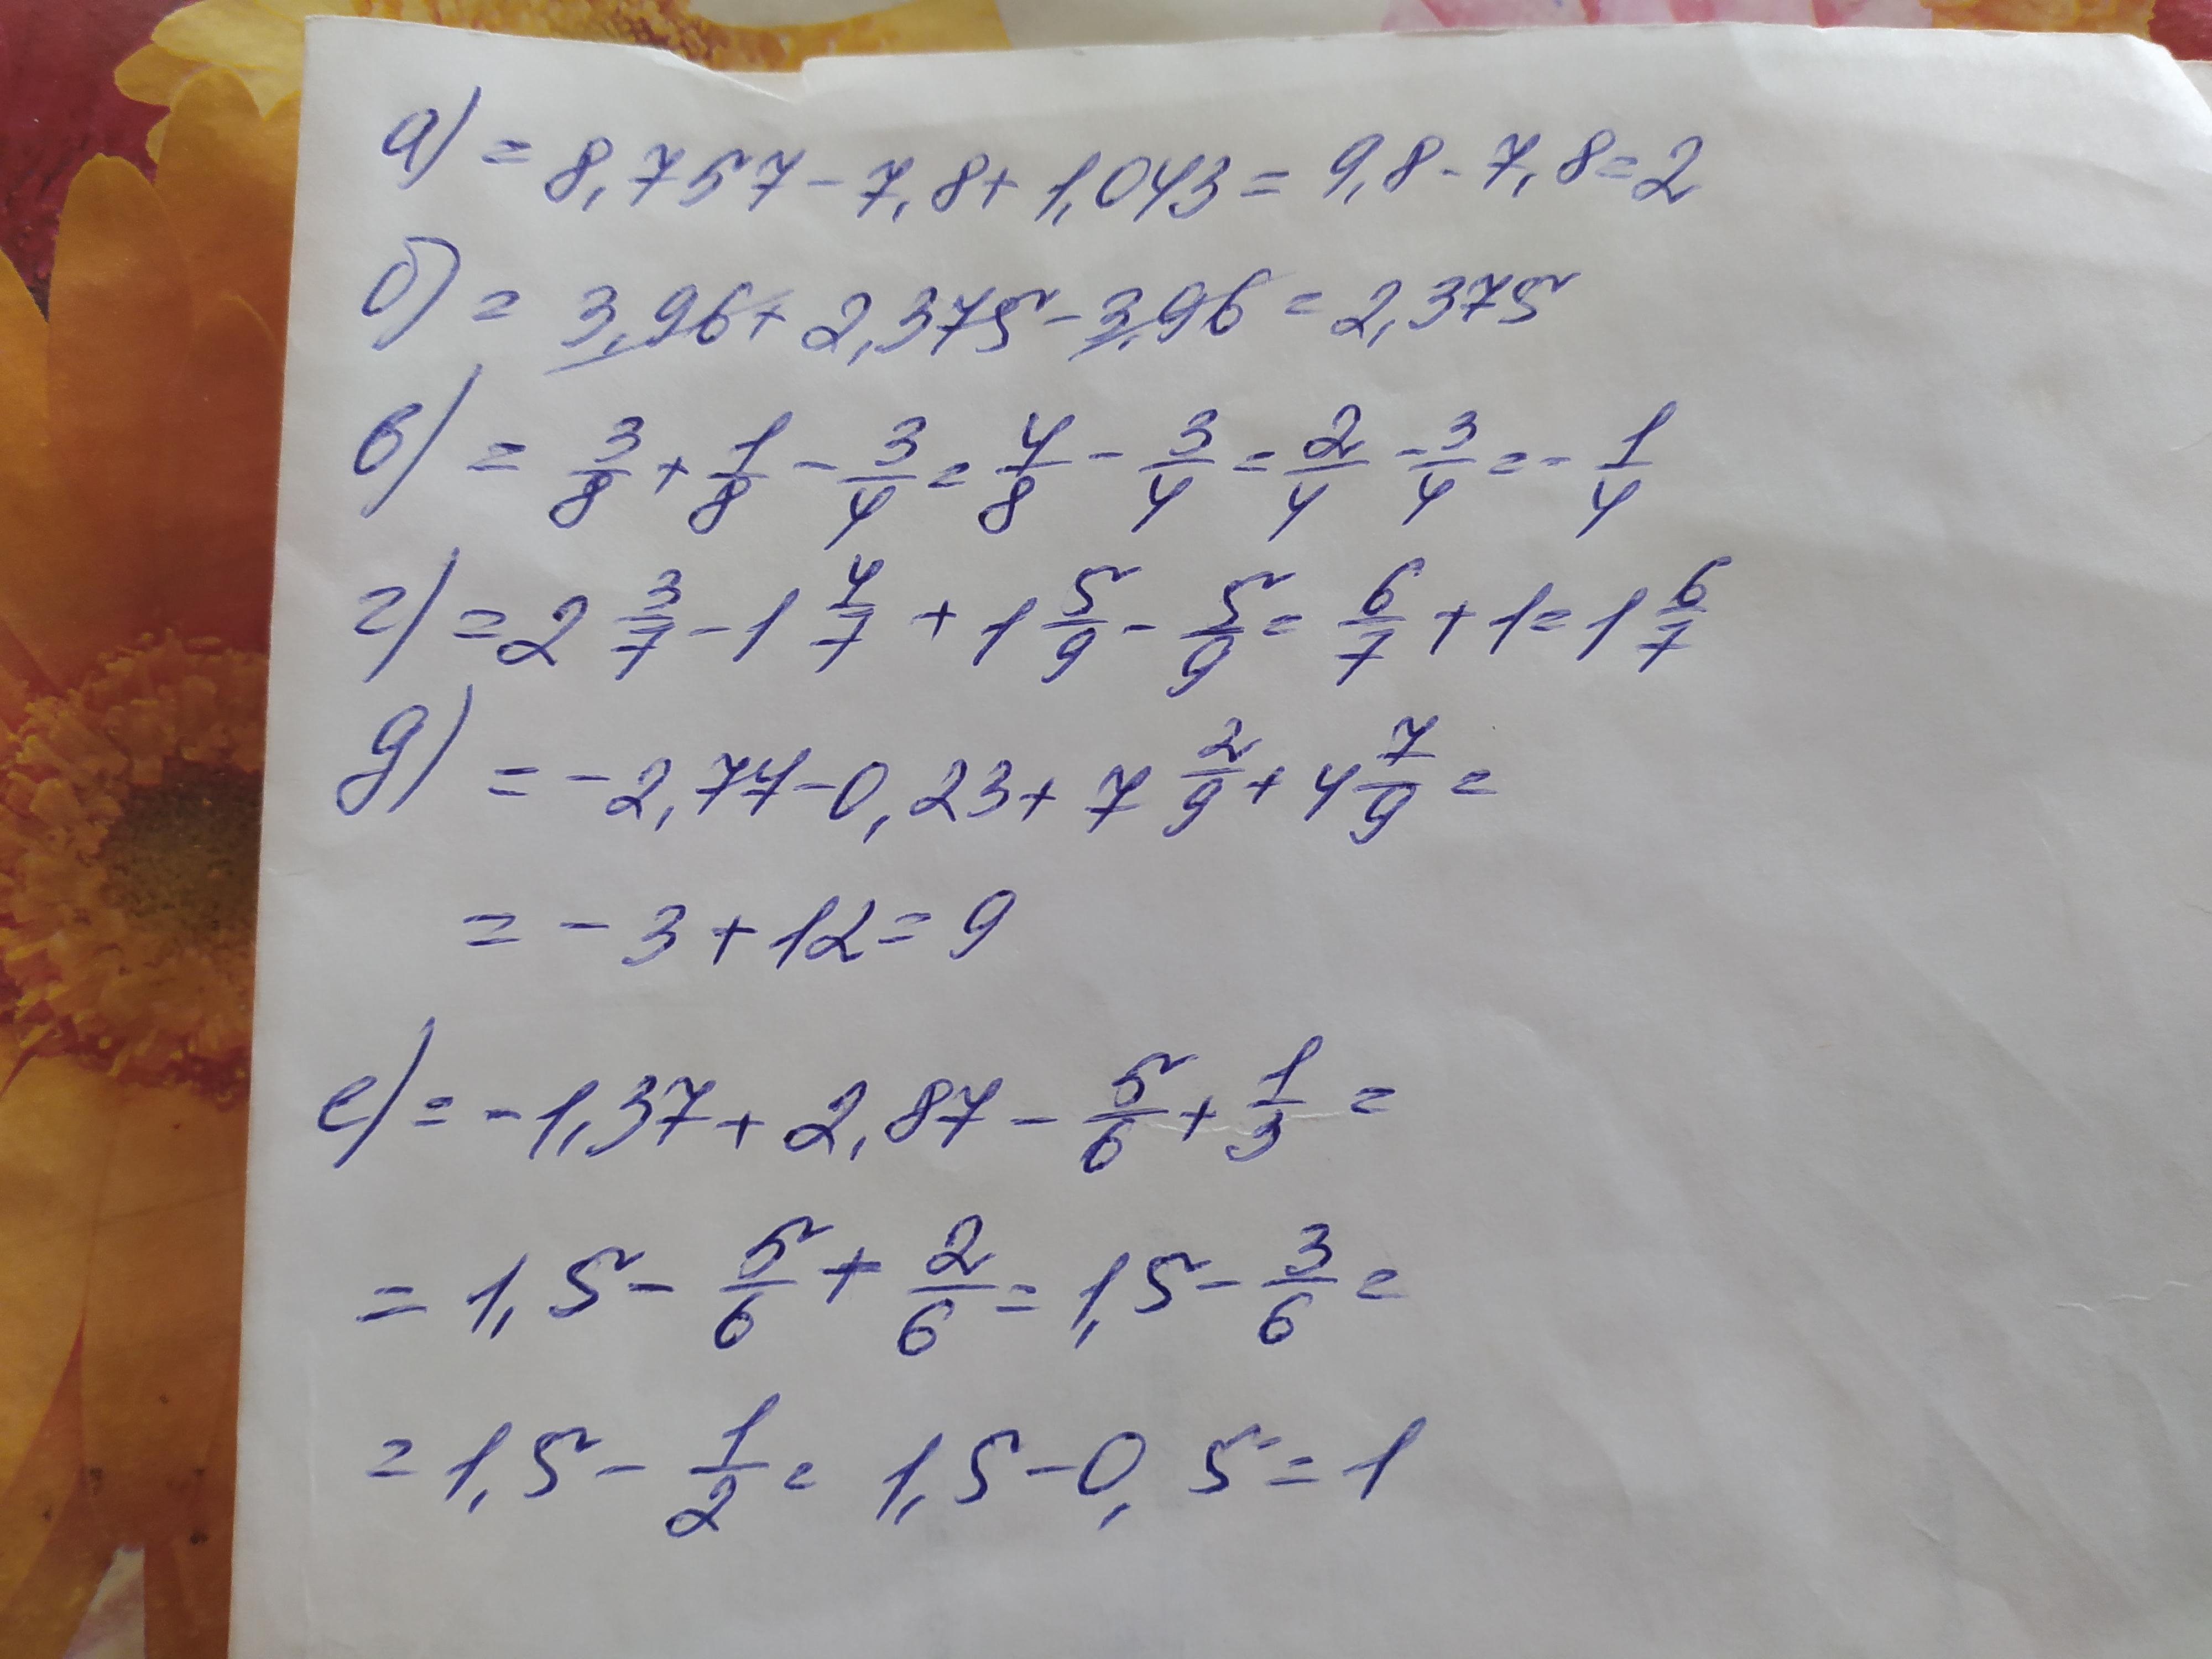 а) = 8,757 - 7,8 + 1,043 = 9,8 - 7,8 = 2
б) = 3,96 + 2,375 - 3,96 = 2,375
в) = 3/8 + 1/8 - 3/4 = 4/8 - 3/4 = 2/4 - 3/4 = - 1/4
г) = 2 3/7 - 1 4/7 + 1 5/9 - 5/9 = 6/7 + 1 = 1 6/7
д) = - 2,77 - 0,23 + 7 2/9 + 4 7/9 =
= - 3 + 12 = 9
е) = - 1,37 + 2,87 - 5/6 + 1/3 =
= 1,5 - 5/6 + 2/6 = 1,5 - 3/6 =
= 1,5 - 1/2 = 1,5 - 0,5 = 1